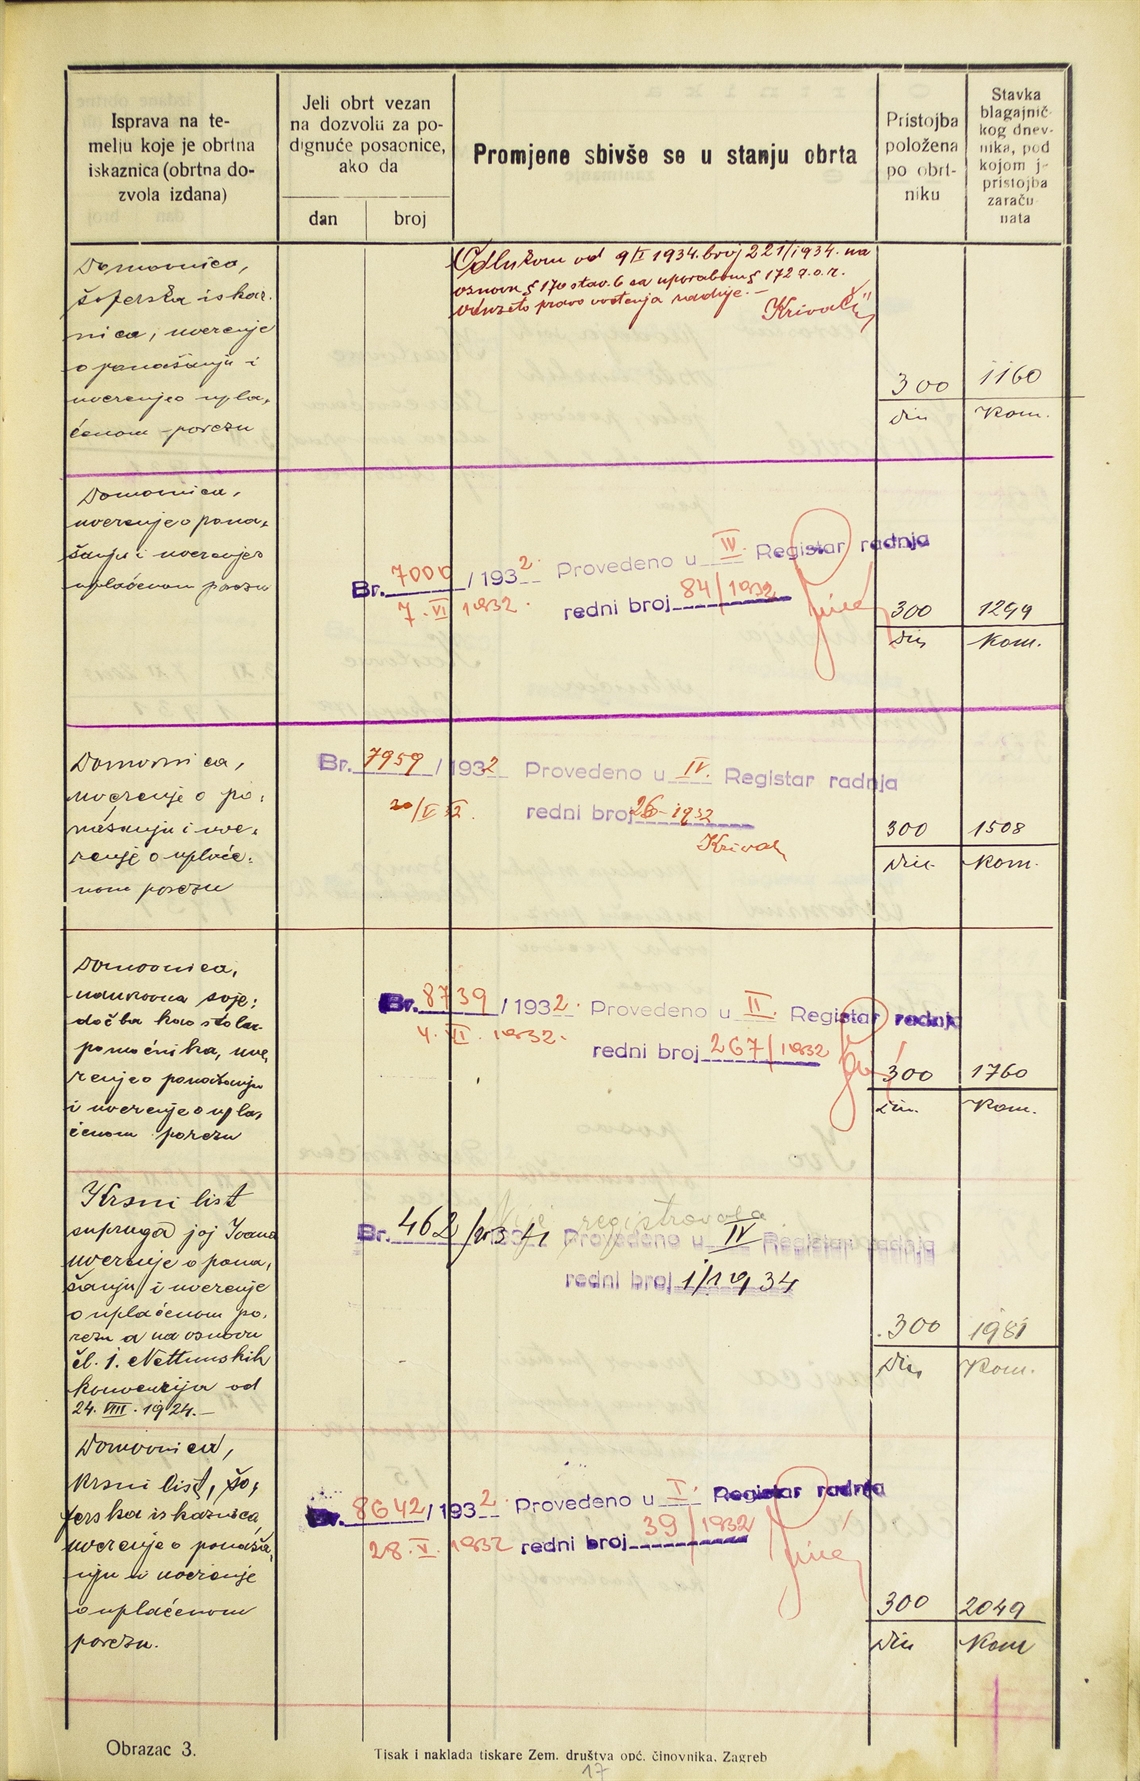 Isprava na te-
melju koje je obrtna
iskaznica (obrtna do-
zvola izdana)
Jeli obrt vezan
na dozvolu za po-
dignuće posaonice,
ako da
dan
broj
Promjene sbivše se u stanju obrta
Pristojba
položena
po obrt-
niku
Stavka
blagajnič-
kog dnev-
nika, pod
kojom j-
pristojba
zaraču-
nata
Domovnica,
šoferska iskaz.
nica, uverenje
o ponašanju i
uverenje o upla,
ćenom porezu
Odlukom od 9/I 1934. broj 221/1934. na
osnovu § 170 stav. 6 sa uporabom § 172 z.o.r.
oduzeto pravo vođenja radnje. —
300
din
1160
Kom.
Domovnica,
uverenje o pona,
šanju i uverenje o
uplaćenom porezu
Br. 7000 / 1932. Provedeno u IV. Registar radnja
7. VI 1932. redni broj 84/1932
300
din
1299
Kom.
Domovnica,
uverenje o po:
našanju i uve,
renje o uplaće:
nom porezu
Br. 7959 / 1932 Provedeno u IV. Registar radnja
redni broj 26-1932
300
Din.
1508
Kom.
Domovnica,
naukovna svje:
dočba kao stolar.
pomoćnika, uve,
renje o ponašanju
i uverenje o upla,
ćenom porezu
Br. 8739 / 1932. Provedeno u II. Registar radnja
4. VI. 1932. redni broj 267/1932
300
din.
1760
Kom.
Krsni list
supruga joj Ivana
uverenje o pona,
šanju i uverenje
o uplaćenom po,
rezu a na osnovu
čl. 1. Nettunskih
konvencija od
24. VIII. 1924.—
registrovala
Br. 462 / Provedeno u IV Registar radnja
redni broj 1/1934
300
Din
1981
Kom.
Domovnica,
Krsni list, šo,
ferska iskaznica,
uverenje o ponaša,
nju i uverenje
o uplaćenom
porezu.
Br. 8642 / 1932. Provedeno u I. Registar radnja
28. V. 1932 redni broj 39/1932
300
Din
2049
Kom
Obrazac 3.
Tisak i naklada tiskare Zem. društva opć. činovnika, Zagreb
17